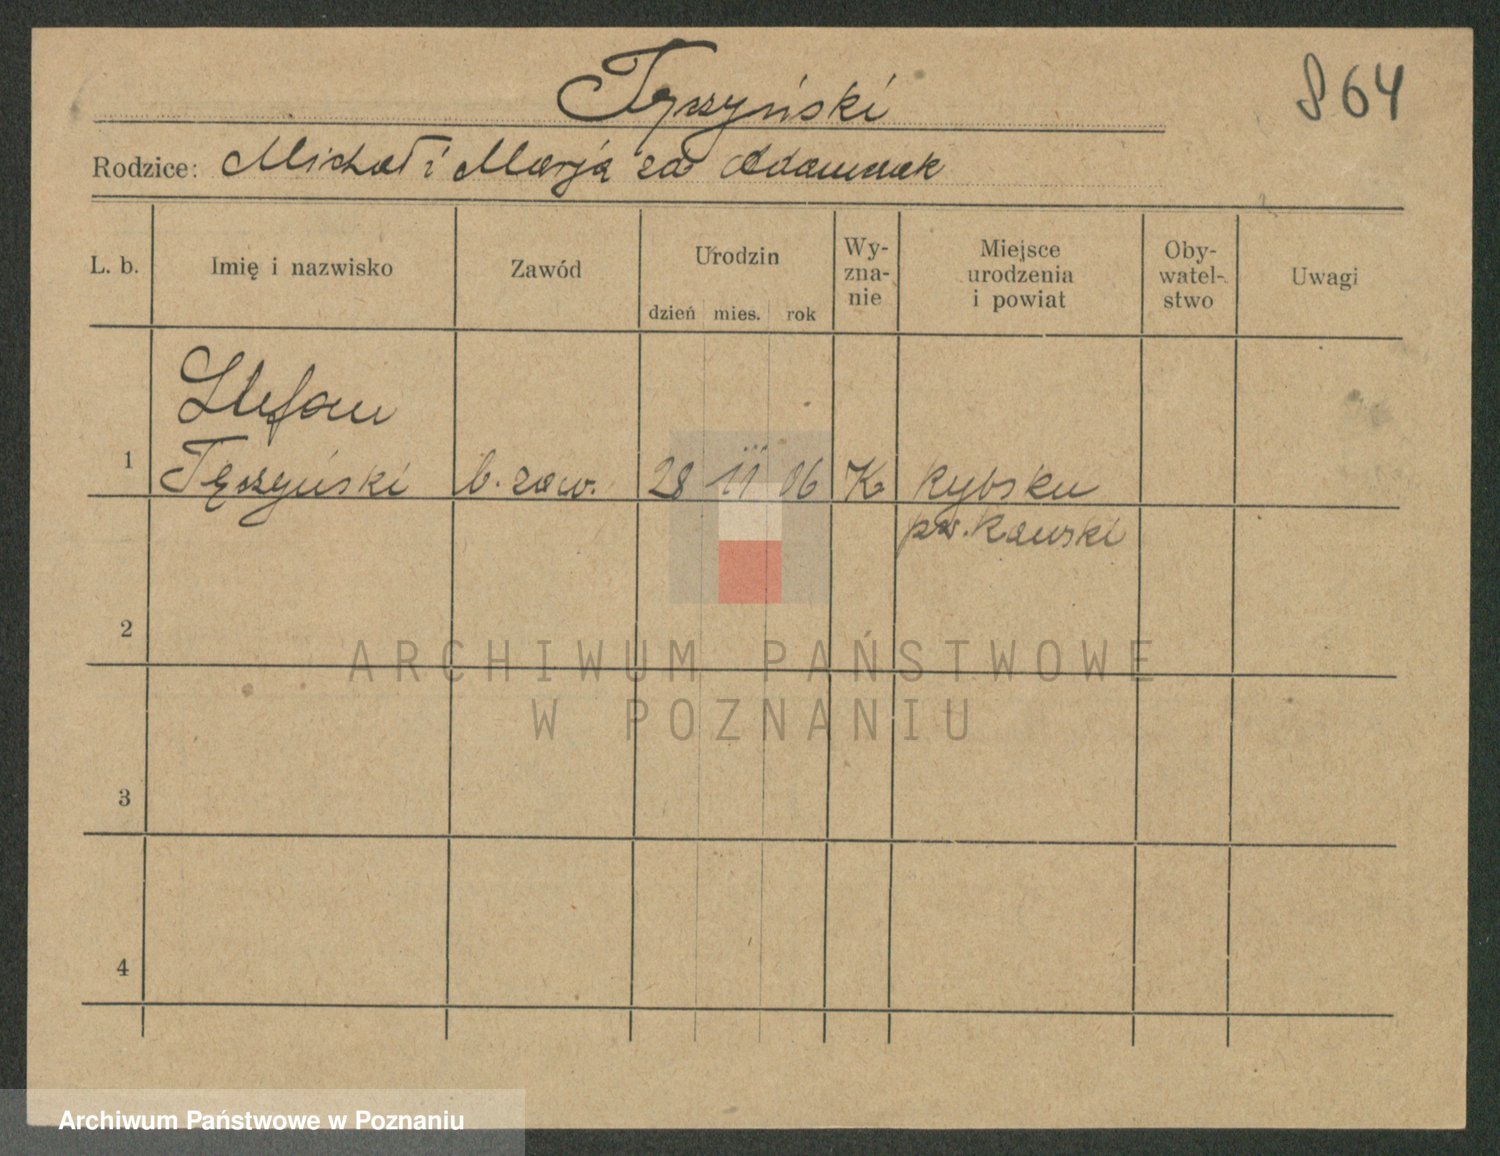 Tęszyński
864
Rodzice: Michał i Marja za Adamczak
L. b. Imię i nazwisko Zawód Urodzin dzień mies. rok Wy-zna-nie Miejsce urodzenia i powiat Oby-watel-stwo Uwagi
Stefan
1 Tęszyński b. zaw. 28 11 06 K
pow.
2
3
4
ARCHIWUM PAŃSTWOWE
W POZNANIU
Archiwum Państwowe w Poznaniu